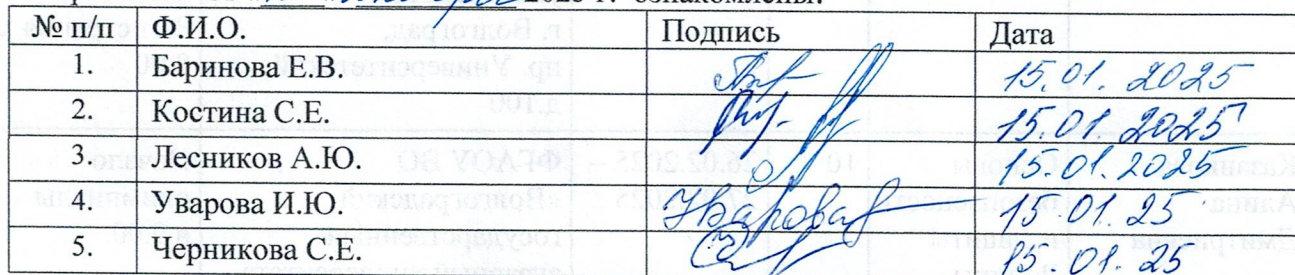 2025 г. ознакомлены:
№ п/п Ф.И.О. Подпись Дата
1. Баринова Е.В. 15.01.2025
2. Костина С.Е. 15.01.2025
3. Лесников А.Ю. 15.01.2025
4. Уварова И.Ю. Уварова 15.01.25
5. Черникова С.Е. 15.01.25